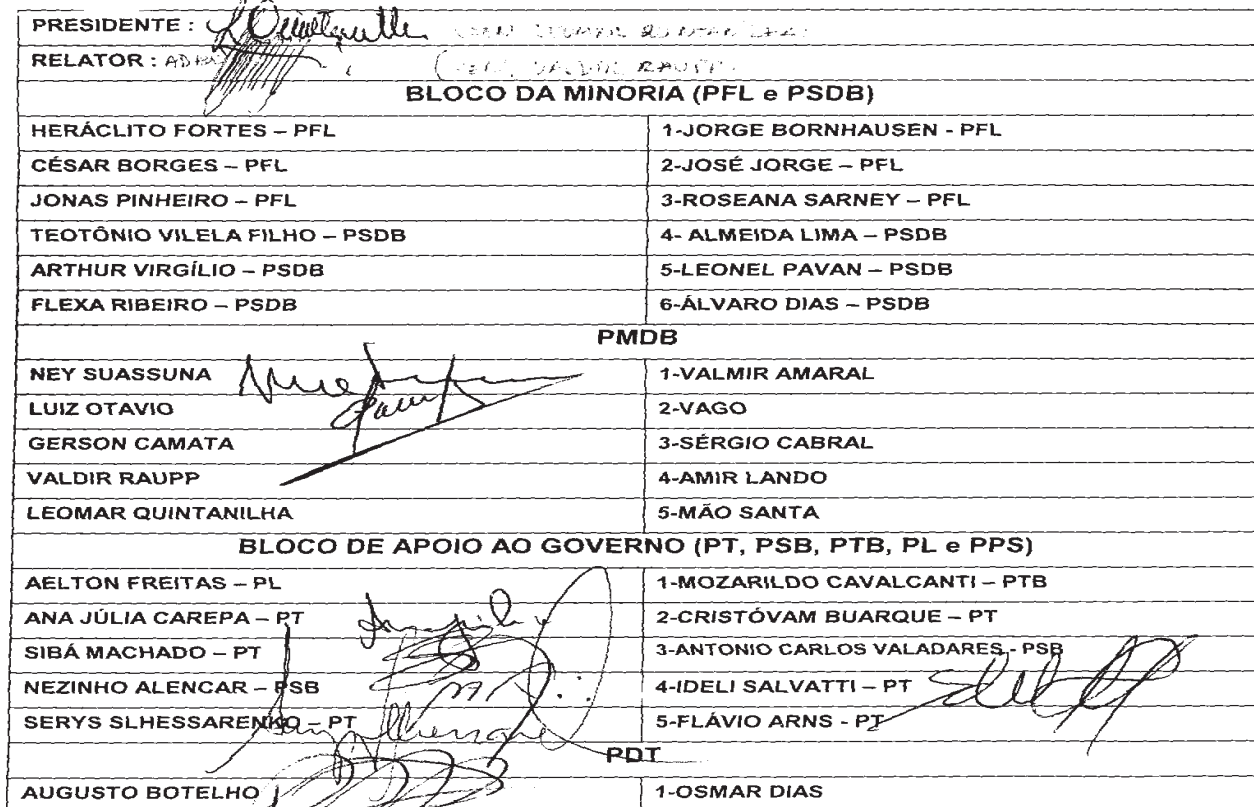 PRESIDENTE :
RELATOR :
BLOCO DA MINORIA (PFL e PSDB)
HERÁCLITO FORTES – PFL 1-JORGE BORNHAUSEN - PFL
CÉSAR BORGES – PFL 2-JOSÉ JORGE – PFL
JONAS PINHEIRO – PFL 3-ROSEANA SARNEY – PFL
TEOTÔNIO VILELA FILHO – PSDB 4- ALMEIDA LIMA – PSDB
ARTHUR VIRGÍLIO – PSDB 5-LEONEL PAVAN – PSDB
FLEXA RIBEIRO – PSDB 6-ÁLVARO DIAS – PSDB
PMDB
NEY SUASSUNA 1-VALMIR AMARAL
LUIZ OTAVIO 2-VAGO
GERSON CAMATA 3-SÉRGIO CABRAL
VALDIR RAUPP 4-AMIR LANDO
LEOMAR QUINTANILHA 5-MÃO SANTA
BLOCO DE APOIO AO GOVERNO (PT, PSB, PTB, PL e PPS)
AELTON FREITAS – PL 1-MOZARILDO CAVALCANTI – PTB
ANA JÚLIA CAREPA – PT 2-CRISTÓVAM BUARQUE – PT
SIBÁ MACHADO – PT 3-ANTONIO CARLOS VALADARES - PSB
NEZINHO ALENCAR – PSB 4-IDELI SALVATTI – PT
SERYS SLHESSARENKO – PT 5-FLÁVIO ARNS - PT
PDT
AUGUSTO BOTELHO 1-OSMAR DIAS